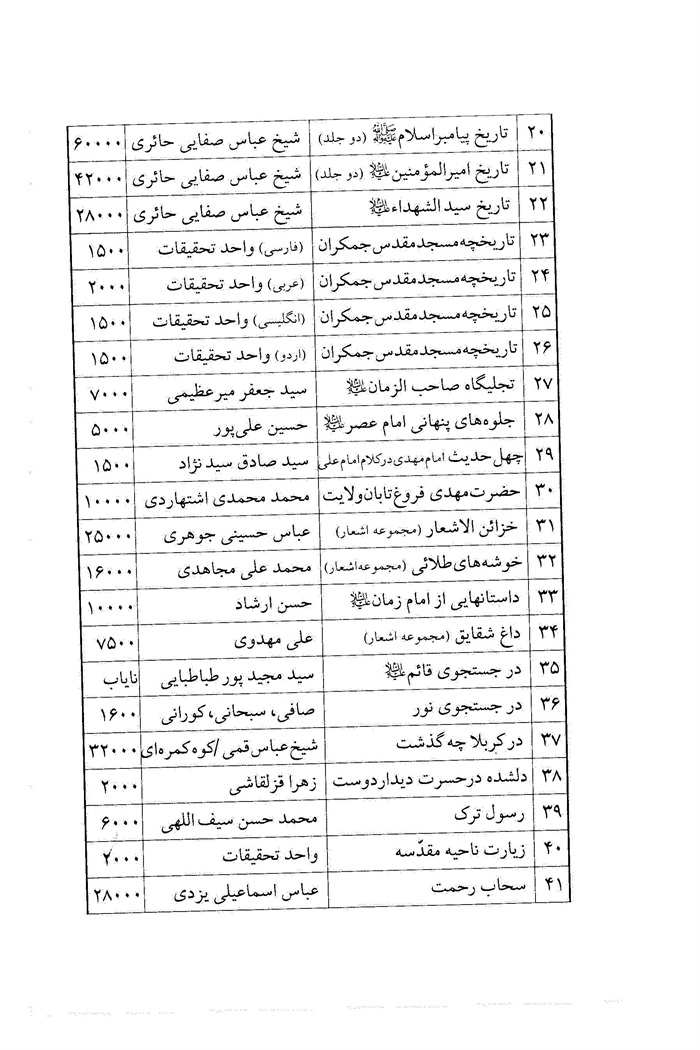 ۲۰ تاریخ پیامبر اسلام ﷺ (دو جلد) شیخ عباس صفایی حائری ۶۰۰۰۰
۲۱ تاریخ امیرالمؤمنین علیه‌السلام (دو جلد) شیخ عباس صفایی حائری ۴۲۰۰۰
۲۲ تاریخ سید الشهداء علیه‌السلام شیخ عباس صفایی حائری ۲۸۰۰۰
۲۳ تاریخچه مسجد مقدس جمکران (فارسی) واحد تحقیقات ۱۵۰۰
۲۴ تاریخچه مسجد مقدس جمکران (عربی) واحد تحقیقات ۲۰۰۰
۲۵ تاریخچه مسجد مقدس جمکران (انگلیسی) واحد تحقیقات ۱۵۰۰
۲۶ تاریخچه مسجد مقدس جمکران (اردو) واحد تحقیقات ۱۵۰۰
۲۷ تجلیگاه صاحب الزمان علیه‌السلام سید جعفر میرعظیمی ۷۰۰۰
۲۸ جلوه‌های پنهانی امام عصر علیه‌السلام حسین علی‌پور ۵۰۰۰
۲۹ چهل حدیث امام مهدی در کلام امام علی سید صادق سید نژاد ۱۵۰۰
۳۰ حضرت مهدی فروغ تابان ولایت محمد محمدی اشتهاردی ۱۰۰۰۰
۳۱ خزائن الاشعار (مجموعه اشعار) عباس حسینی جوهری ۲۵۰۰۰
۳۲ خوشه‌های طلائی (مجموعه اشعار) محمد علی مجاهدی ۱۶۰۰۰
۳۳ داستانهایی از امام زمان علیه‌السلام حسن ارشاد ۱۰۰۰۰
۳۴ داغ شقایق (مجموعه اشعار) علی مهدوی ۷۵۰۰
۳۵ در جستجوی قائم علیه‌السلام سید مجید پور طباطبایی نایاب
۳۶ در جستجوی نور صافی، سبحانی، کورانی ۱۶۰۰
۳۷ در کربلا چه گذشت شیخ عباس قمی/کوه کمره‌ای ۳۲۰۰۰
۳۸ دلشده در حسرت دیدار دوست زهرا قزلقاشی ۲۰۰۰
۳۹ رسول ترک محمد حسن سیف اللهی ۶۰۰۰
۴۰ زیارت ناحیه مقدّسه واحد تحقیقات ۲۰۰۰
۴۱ سحاب رحمت عباس اسماعیلی یزدی ۲۸۰۰۰